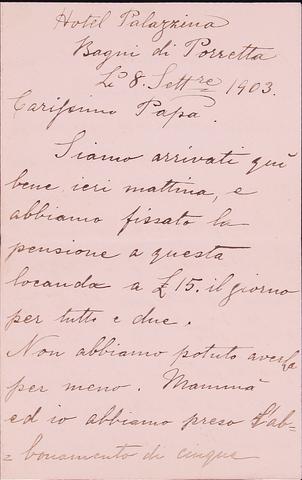 Hotel Palazzina
Bagni di Porretta
Li 8. Settre 1903.
Carissimo Papa.
Siamo arrivati qui
bene ieri mattina, e
abbiamo fissato la
pensione a questa
locanda a £15. il giorno
per tutte e due.
Non abbiamo potuto averla
per meno. Mammà
ed io abbiamo preso l'ab-
=bonamento di cinque